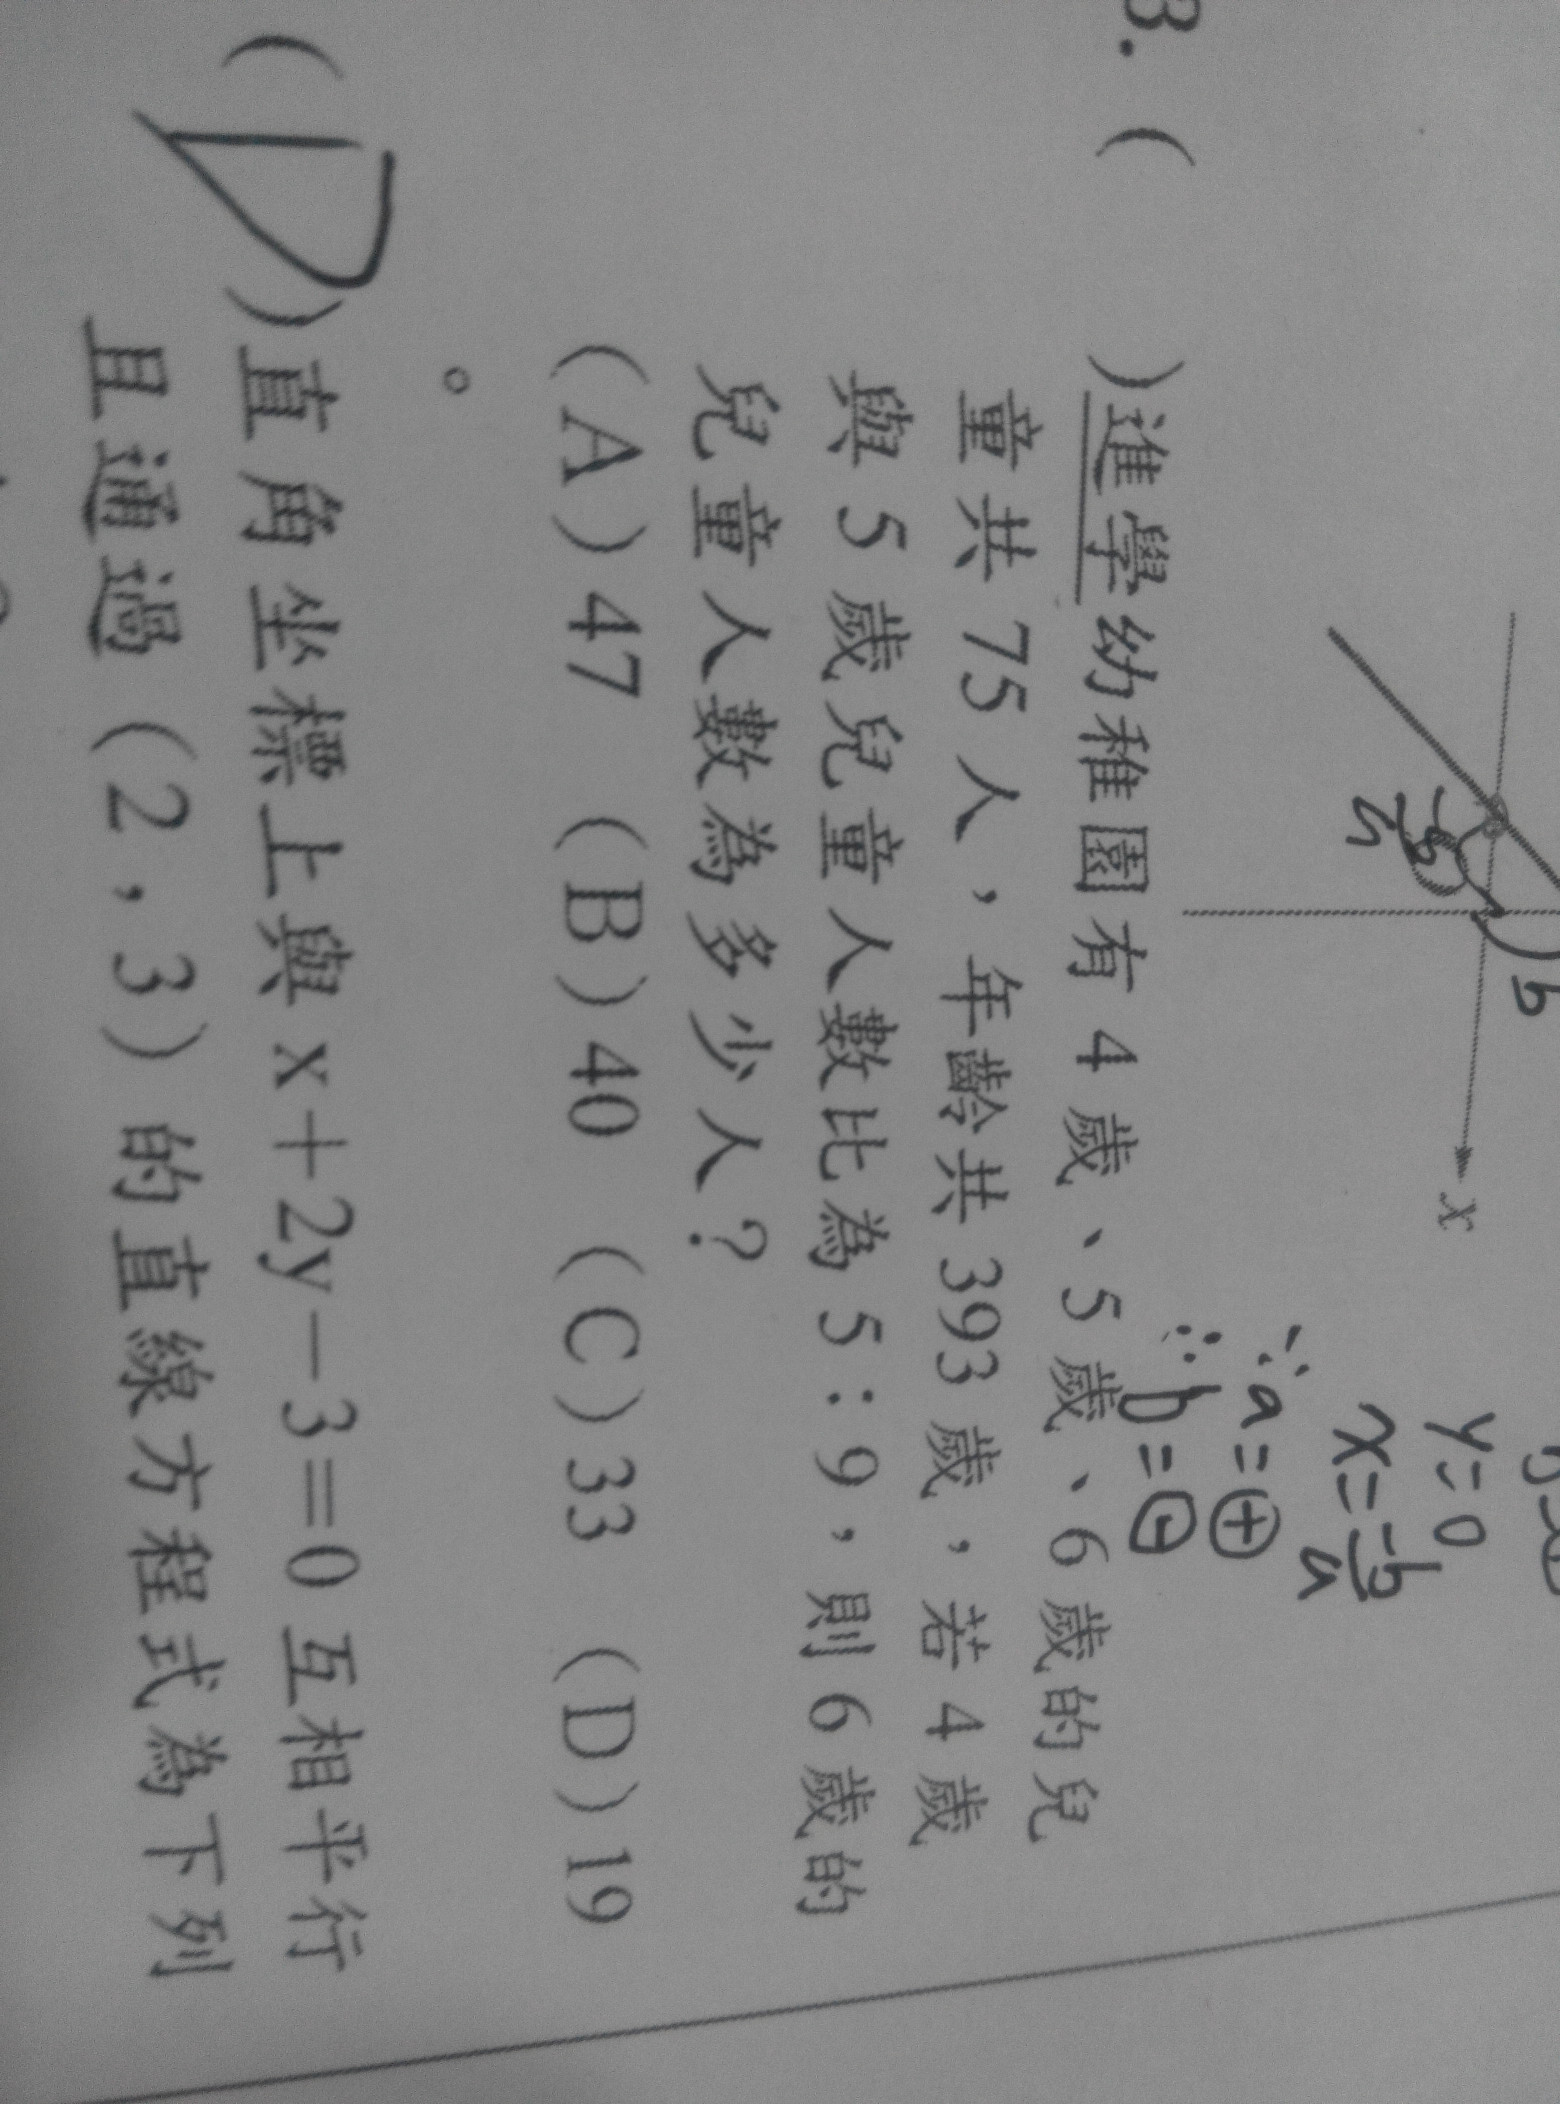 x
b
y=0
x=-b/a
∵a=⊕
∴b=⊖
3. ( )進學幼稚園有 4 歲、5 歲、6 歲的兒
童共 75 人，年齡共 393 歲，若 4 歲
與 5 歲兒童人數比為 5：9，則 6 歲的
兒童人數為多少人？
(A)47 (B)40 (C)33 (D)19
。
(D)直角坐標上與 x＋2y－3＝0 互相平行
且通過(2，3)的直線方程式為下列